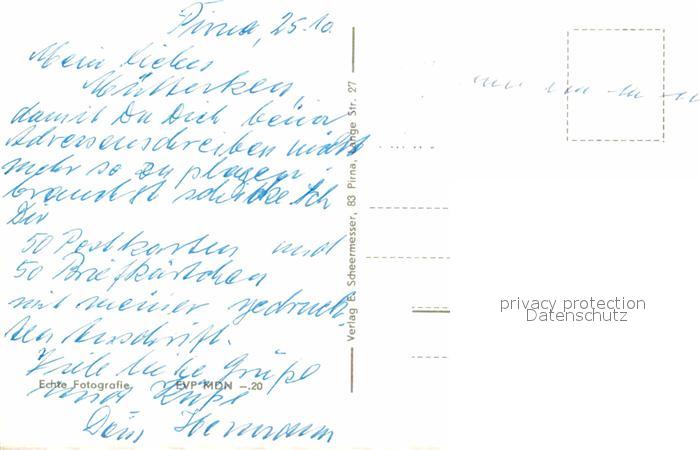 Pirna, 25.10.
Mein liebes
Mütterken,
damit Du Dich beim
Adressenschreiben nicht
mehr so zu plagen
brauchst schicke ich
Dir
50 Postkarten und
50 Briefkärtchen
mit meiner gedruck-
ten Anschrift.
Viele liebe Grüße
und Küße
Dein Hermann
Echte Fotografie EVP MDN –.20
Verlag E. Scheermesser, 83 Pirna, Lange Str. 27
privacy protection
Datenschutz